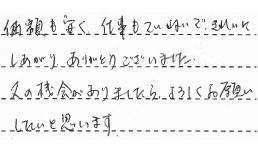 価額も安く、仕事もていねいで、きれいに
しあがり、ありがとうございました。
又の機会がありましたら、よろしくお願い
したいと思います。